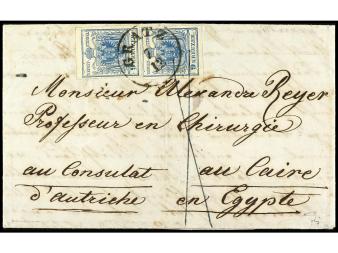 GRATZ
Monsieur Alexandre Reyer
Professeur en Chirurgie
au Consulat au Caire
d'autriche en Egypte